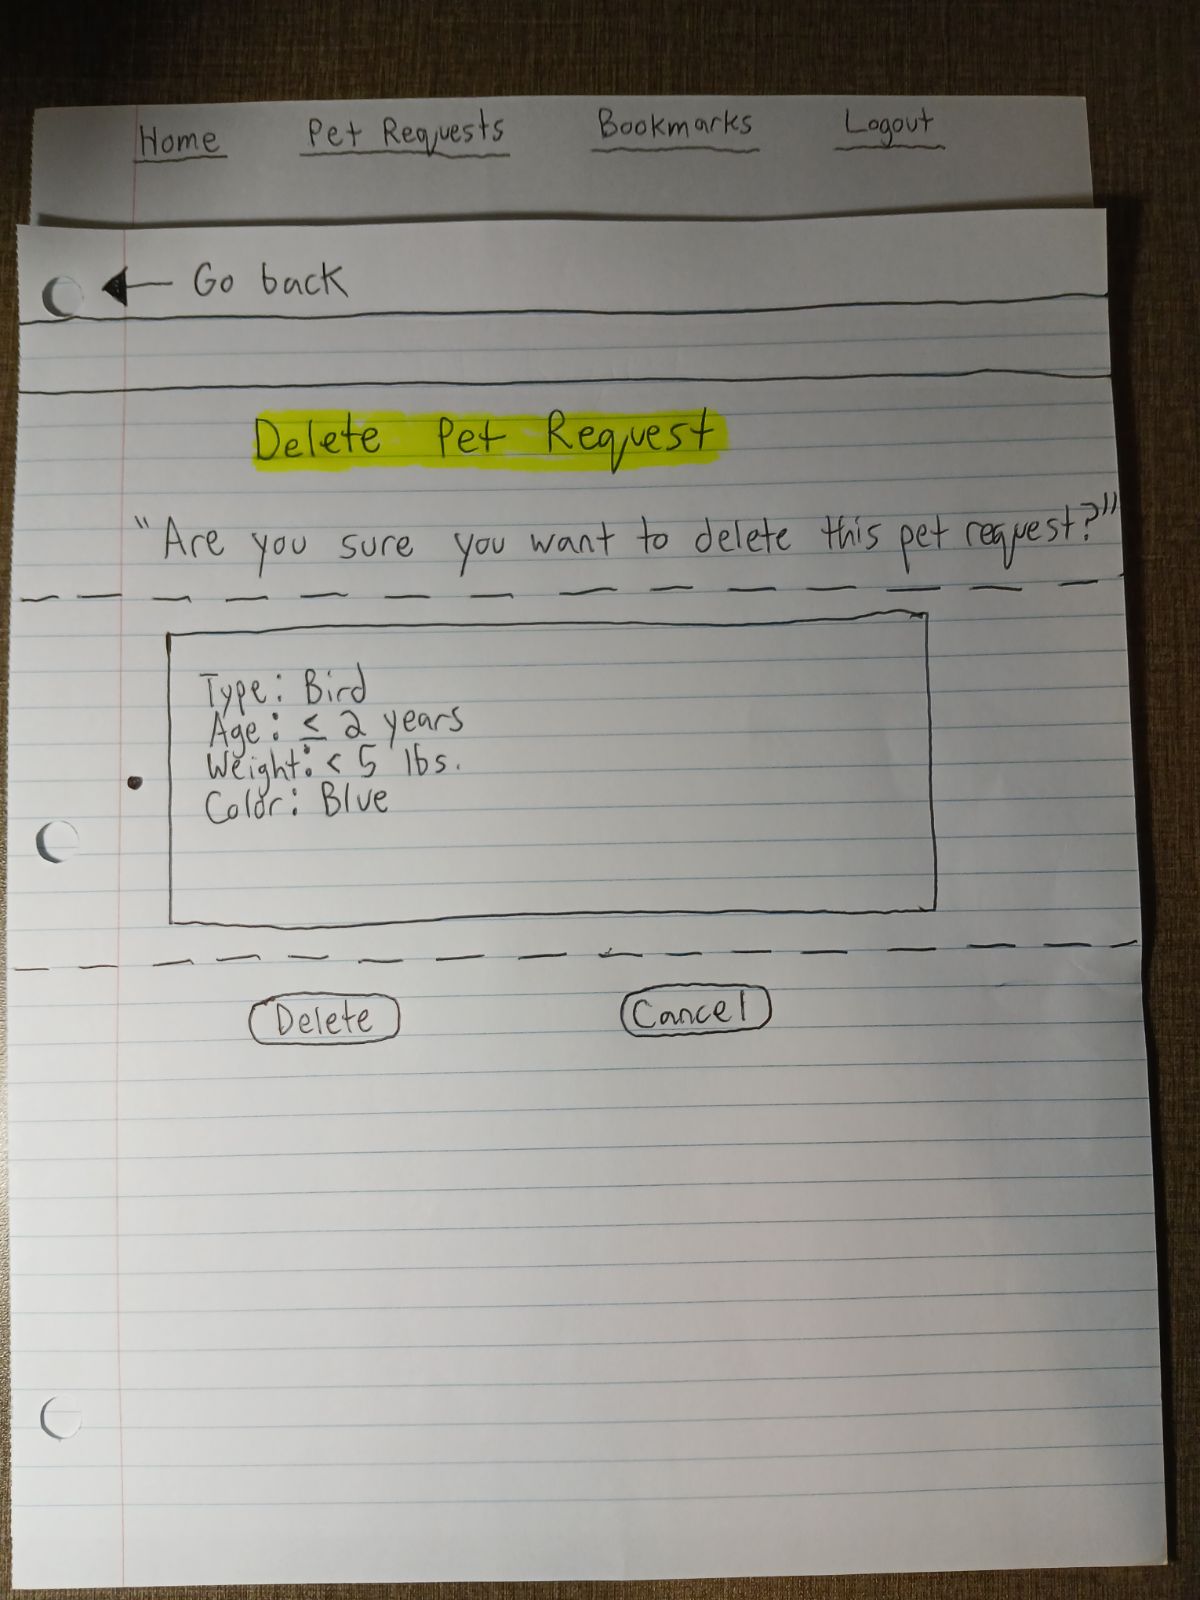 Home Pet Requests Bookmarks Logout
Go back
Delete Pet Request
"Are you sure you want to delete this pet request?"
Type: Bird
Age: ≤ 2 years
Weight: < 5 lbs.
Color: Blue
Delete Cancel